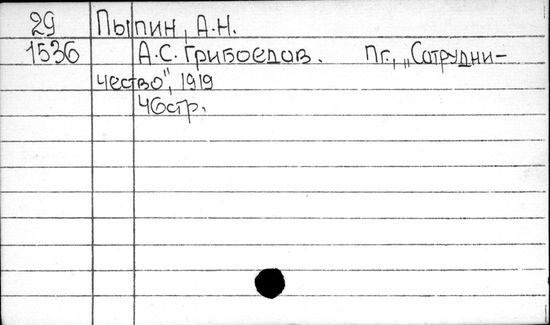 29 Пыпин, А.Н.
1536 А.С. Грибоедов. Пг., „Сотрудни-
чество", 1919
46стр.